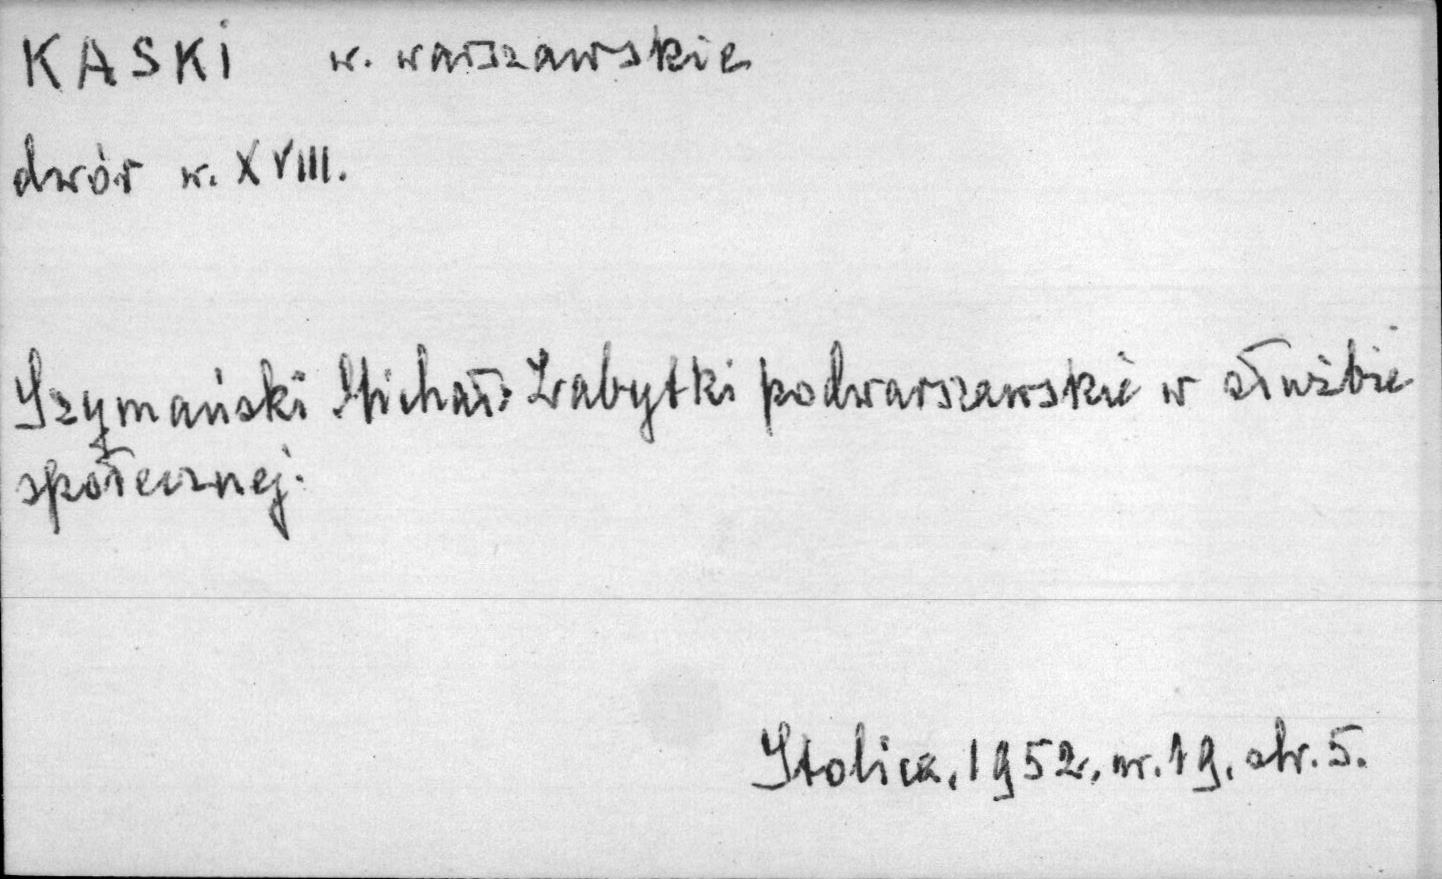 KASKI w. warszawskie
dwór w. XVIII.
Szymański Michał: Zabytki podwarszawskie w służbie
społecznej.
Stolica, 1952, nr. 19, str. 5.